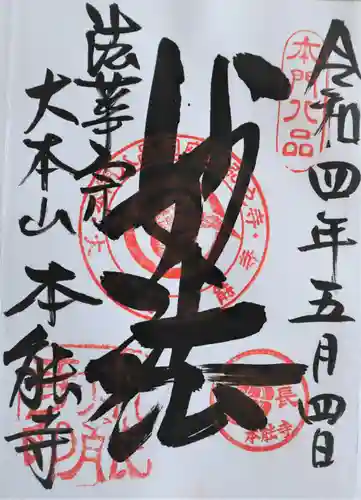 令和四年五月四日
本門八品
妙法
法華宗
大本山 本能寺
長
本能寺